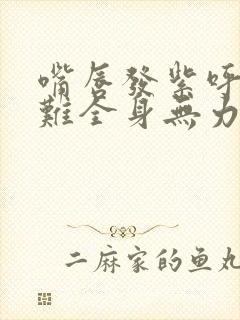 嘴唇發紫呼
難全身無力
二麻家的鱼丸